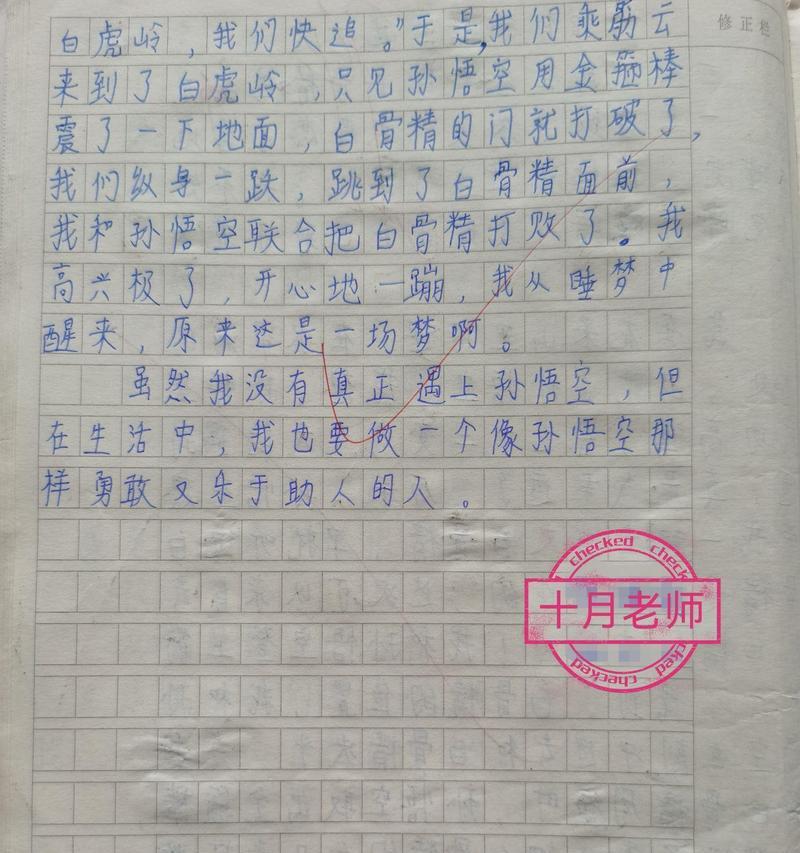 修正栏
白虎岭，我们快追。”于是，我们乘筋云
来到了白虎岭，只见孙悟空用金箍棒
震了一下地面，白骨精的门就打破了，
我们纵身一跃，跳到了白骨精面前，
我和孙悟空联合把白骨精打败了。我
高兴极了，开心地一蹦，我从睡梦中
醒来，原来这是一场梦啊。
虽然我没有真正遇上孙悟空，但
在生活中，我也要做一个像孙悟空那
样勇敢又乐于助人的人。
checked checked
十月老师
checked checked